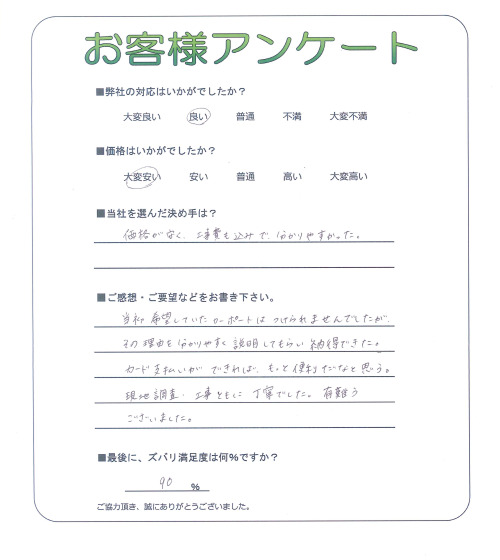 お客様アンケート
■弊社の対応はいかがでしたか？
大変良い 良い 普通 不満 大変不満
■価格はいかがでしたか？
大変安い 安い 普通 高い 大変高い
■当社を選んだ決め手は？
価格が安く、工事費も込みで、分かりやすかった。
■ご感想・ご要望などをお書き下さい。
当初希望していたカーポートはつけられませんでしたが、
その理由を分かりやすく説明してもらい納得できた。
カード支払いができれば、もっと便利だなと思う。
現地調査・工事ともに丁寧でした。有難う
ございました。
■最後に、ズバリ満足度は何％ですか？
90 ％
ご協力頂き、誠にありがとうございました。